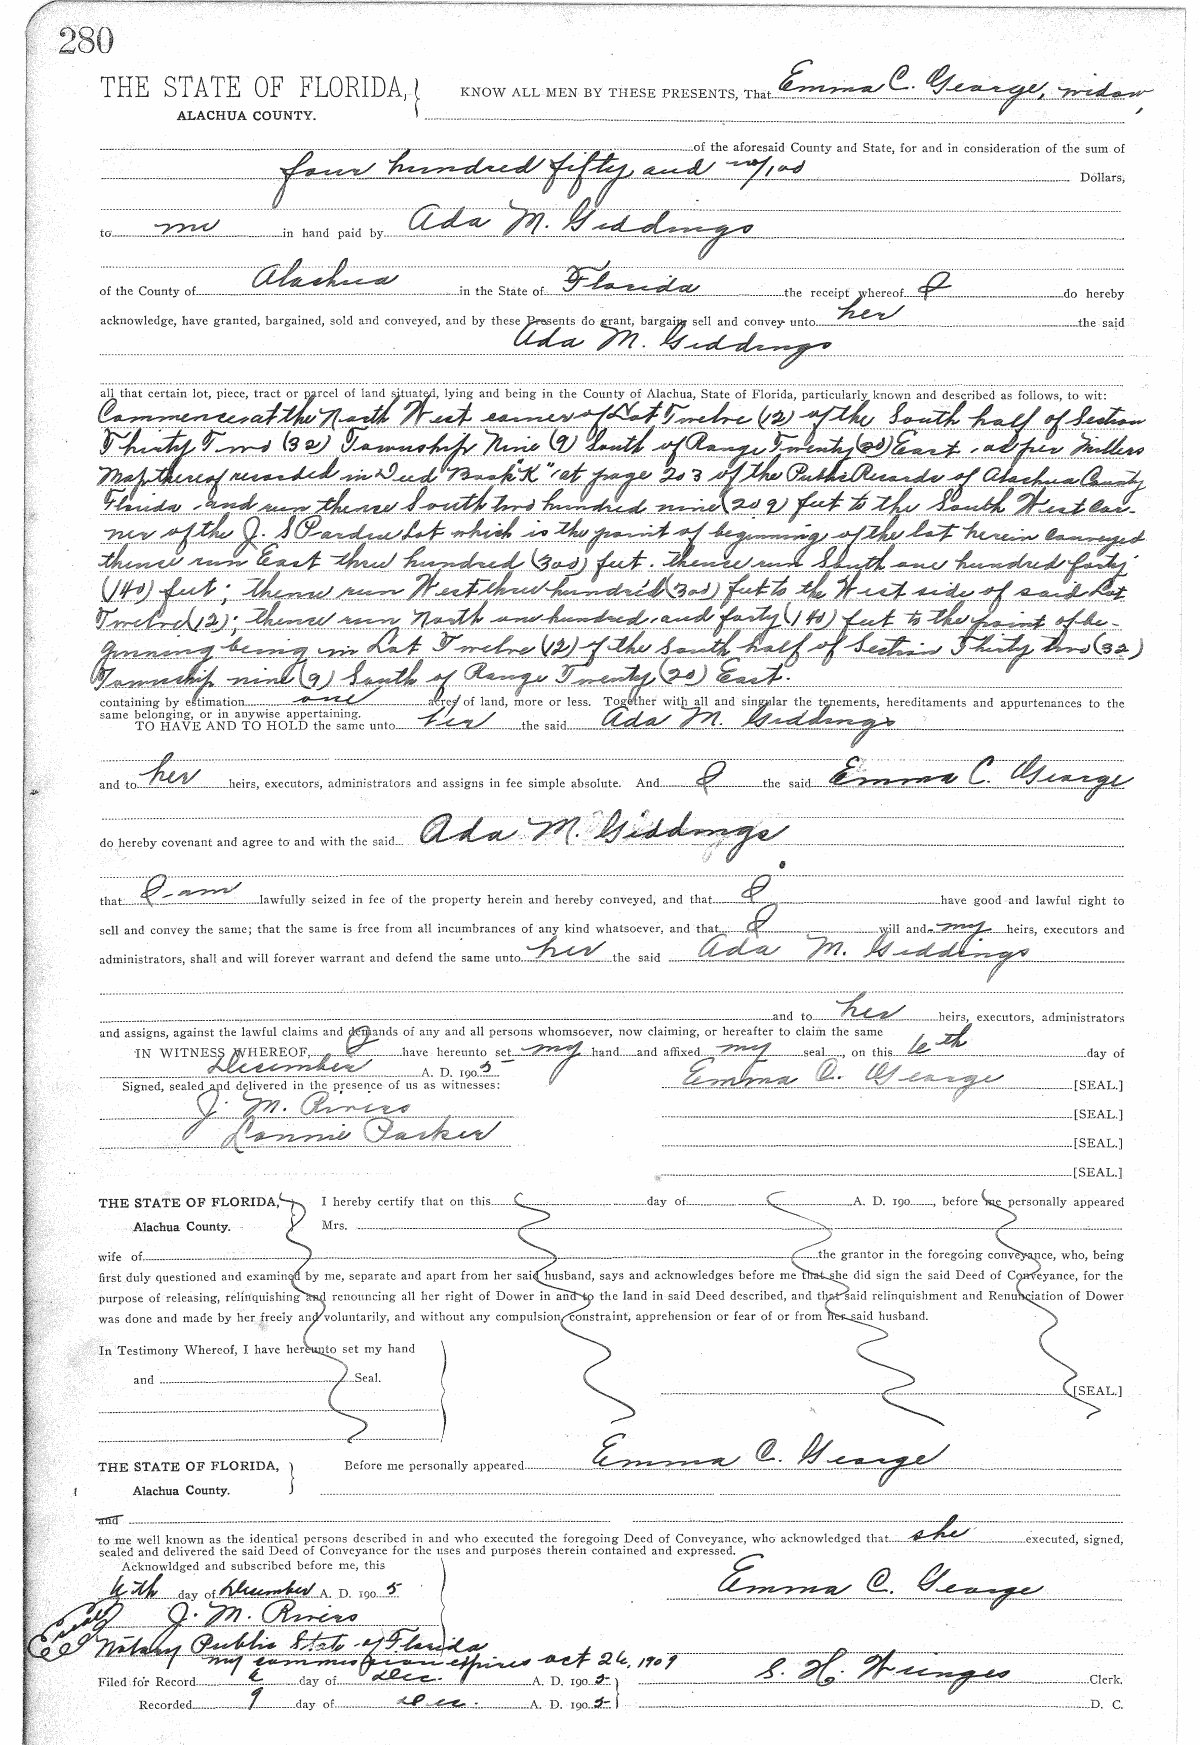 280
THE STATE OF FLORIDA, KNOW ALL MEN BY THESE PRESENTS, That Emma C. George, widow,
ALACHUA COUNTY.
of the aforesaid County and State, for and in consideration of the sum of
four hundred fifty and no/100 Dollars,
to me in hand paid by Ada M. Giddings
of the County of Alachua in the State of Florida the receipt whereof I do hereby
acknowledge, have granted, bargained, sold and conveyed, and by these Presents do grant, bargain, sell and convey unto her the said
Ada M. Giddings
all that certain lot, piece, tract or parcel of land situated, lying and being in the County of Alachua, State of Florida, particularly known and described as follows, to wit:
Commence at the North West corner of Lot Twelve (12) of the South half of Section
Thirty Two (32) Township Nine (9) South of Range Twenty (20) East, as per Millers
Map thereof recorded in Deed Book "K" at page 203 of the Public Records of Alachua County
Florida, and run thence South two hundred nine (209) feet to the South West Cor-
ner of the J. S. Pardue Lot which is the point of beginning of the lot herein conveyed
thence run East three hundred (300) feet. thence run South one hundred forty
(140) feet; thence run West three hundred (300) feet to the West side of said Lot
Twelve (12); thence run North one hundred and forty (140) feet to the point of be-
ginning being in Lot Twelve (12) of the South half of Section Thirty two (32)
Township nine (9) South of Range Twenty (20) East.
containing by estimation one acres of land, more or less. Together with all and singular the tenements, hereditaments and appurtenances to the
same belonging, or in anywise appertaining.
TO HAVE AND TO HOLD the same unto her the said Ada M. Giddings
and to her heirs, executors, administrators and assigns in fee simple absolute. And I the said Emma C. George
do hereby covenant and agree to and with the said Ada M. Giddings
that I am lawfully seized in fee of the property herein and hereby conveyed, and that I have good and lawful right to
sell and convey the same; that the same is free from all incumbrances of any kind whatsoever, and that I will and my heirs, executors and
administrators, shall and will forever warrant and defend the same unto her the said Ada M. Giddings
and to her heirs, executors, administrators
and assigns, against the lawful claims and demands of any and all persons whomsoever, now claiming, or hereafter to claim the same
IN WITNESS WHEREOF, I have hereunto set my hand and affixed my seal, on this 6th day of
December A. D. 1905
Signed, sealed and delivered in the presence of us as witnesses: Emma C. George [SEAL.]
J. M. Rivers [SEAL.]
Lonnie Parker [SEAL.]
[SEAL.]
THE STATE OF FLORIDA, I hereby certify that on this day of A. D. 190 , before me personally appeared
Alachua County. Mrs.
wife of the grantor in the foregoing conveyance, who, being
first duly questioned and examined by me, separate and apart from her said husband, says and acknowledges before me that she did sign the said Deed of Conveyance, for the
purpose of releasing, relinquishing and renouncing all her right of Dower in and to the land in said Deed described, and that said relinquishment and Renunciation of Dower
was done and made by her freely and voluntarily, and without any compulsion, constraint, apprehension or fear of or from her said husband.
In Testimony Whereof, I have hereunto set my hand
and Seal. [SEAL.]
THE STATE OF FLORIDA, Before me personally appeared Emma C. George
Alachua County.
and
to me well known as the identical persons described in and who executed the foregoing Deed of Conveyance, who acknowledged that she executed, signed,
sealed and delivered the said Deed of Conveyance for the uses and purposes therein contained and expressed.
Acknowldged and subscribed before me, this
6th day of December A. D. 1905 Emma C. George
J. M. Rivers
Notary Public State of Florida
my commission expires Oct 26, 1909
Filed for Record 6 day of Dec. A. D. 1905 S. H. Wienges Clerk.
Recorded 9 day of Dec. A. D. 1905 D. C.